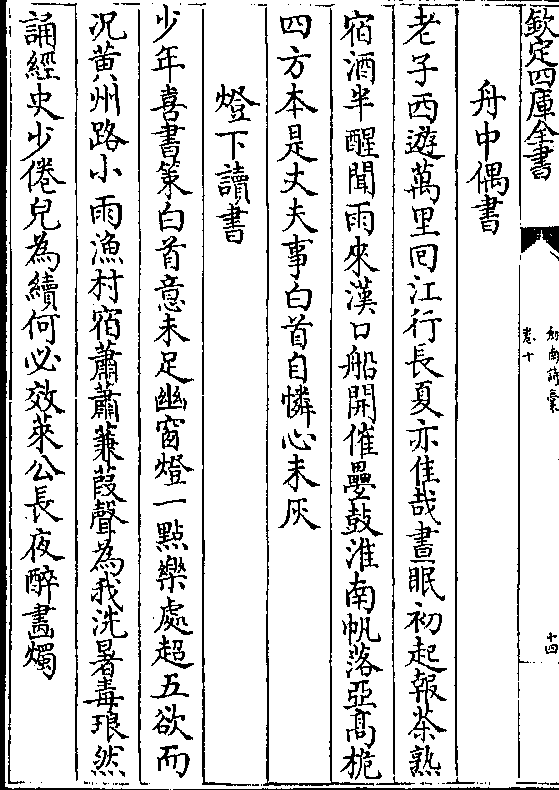 欽定四庫全書
劍南詩稾
卷十
十四
舟中偶書
老子西遊萬里回江行長夏亦佳哉晝眠初起報茶熟
宿酒半醒聞雨來漢口船開催疊鼓淮南帆落亞高桅
四方本是丈夫事白首自憐心未灰
燈下讀書
少年喜書策白首意未足幽窗燈一點樂處超五欲而
況黄州路小雨漁村宿蕭蕭蒹葭聲為我洗暑毒琅然
誦經史少倦兒為續何必效萊公長夜醉畫燭